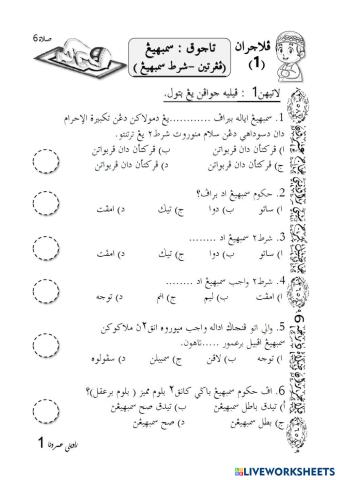 صلاة 6
ڤلاجران
(1)
تاجوق : سمبهيڠ
(ڤڠرتين – شرط سمبهيڠ )
لاتيهن1 : ڤيليه جواڤن يڠ بتول.
1. سمبهيڠ اياله ببيراڤ ............يڠ دمولاكن دڠن تكبيرة الإحرام
دان دسوداهي دڠن سلام منوروت شرط٢ يڠ ترتنتو.
ا) ڤركتأن دان ڤربواتن ب) ڤركتأن دان ڤربواتن
ج) ڤركتأن دان ڤربواتن د) ڤركتأن دان ڤربواتن
2. حكوم سمبهيڠ اد براڤ؟
ا) ساتو ب) دوا ج) تيݢ د) امڤت
3. شرط٢ سمبهيڠ اد ........
ا) ساتو ب) دوا ج) تيݢ د) امڤت
4. شرط٢ واجب سمبهيڠ اد ........
ا) امڤت ب) ليم ج) انم د) توجه
5. والي اتو ڤنجاݢ اداله واجب مپوروه انق٢ن ملاكوكن
سمبهيڠ اڤبيل برعمور .....تاهون.
ا) توجه ب) لاڤن ج) سمبيلن د) سڤولوه
6. اڤ حكوم سمبهيڠ باݢي كانق٢ بلوم مميز ( بلوم برعقل)؟
أ) تيدق باطل سمبهيڠن ب) تيدق صح سمبهيڠن
ج) بطل سمبهيڠن د) صح سمبهيڠن
1
LIVEWORKSHEETS